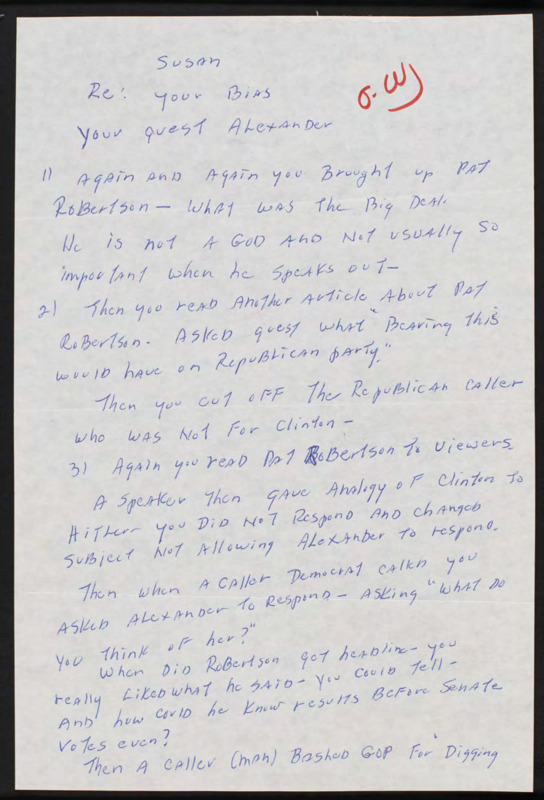 Susan
Re: Your Bias
Your quest Alexander
1) Again and Again you Brought up Pat
Robertson — What was the Big Deal.
He is not a God and Not usually so
important when he speaks out—
2) Then you read Another Article About Pat
Robertson. Asked quest what "Bearing this
would have on Republican party."
Then you cut off The Republican caller
who was Not For Clinton —
3) Again you read Pat Robertson To viewers
A speaker Then gave Analogy of Clinton To
Hitler— you Did Not Respond And changed
subject Not Allowing Alexander To respond.
Then when A caller Democrat called you
Asked Alexander To Respond — Asking "What Do
you think of her?"
When Did Robertson get headline— you
really Liked what he said— you could Tell—
And how could he know results Before Senate
votes even?
Then A caller (man) Bashed GOP For "Digging